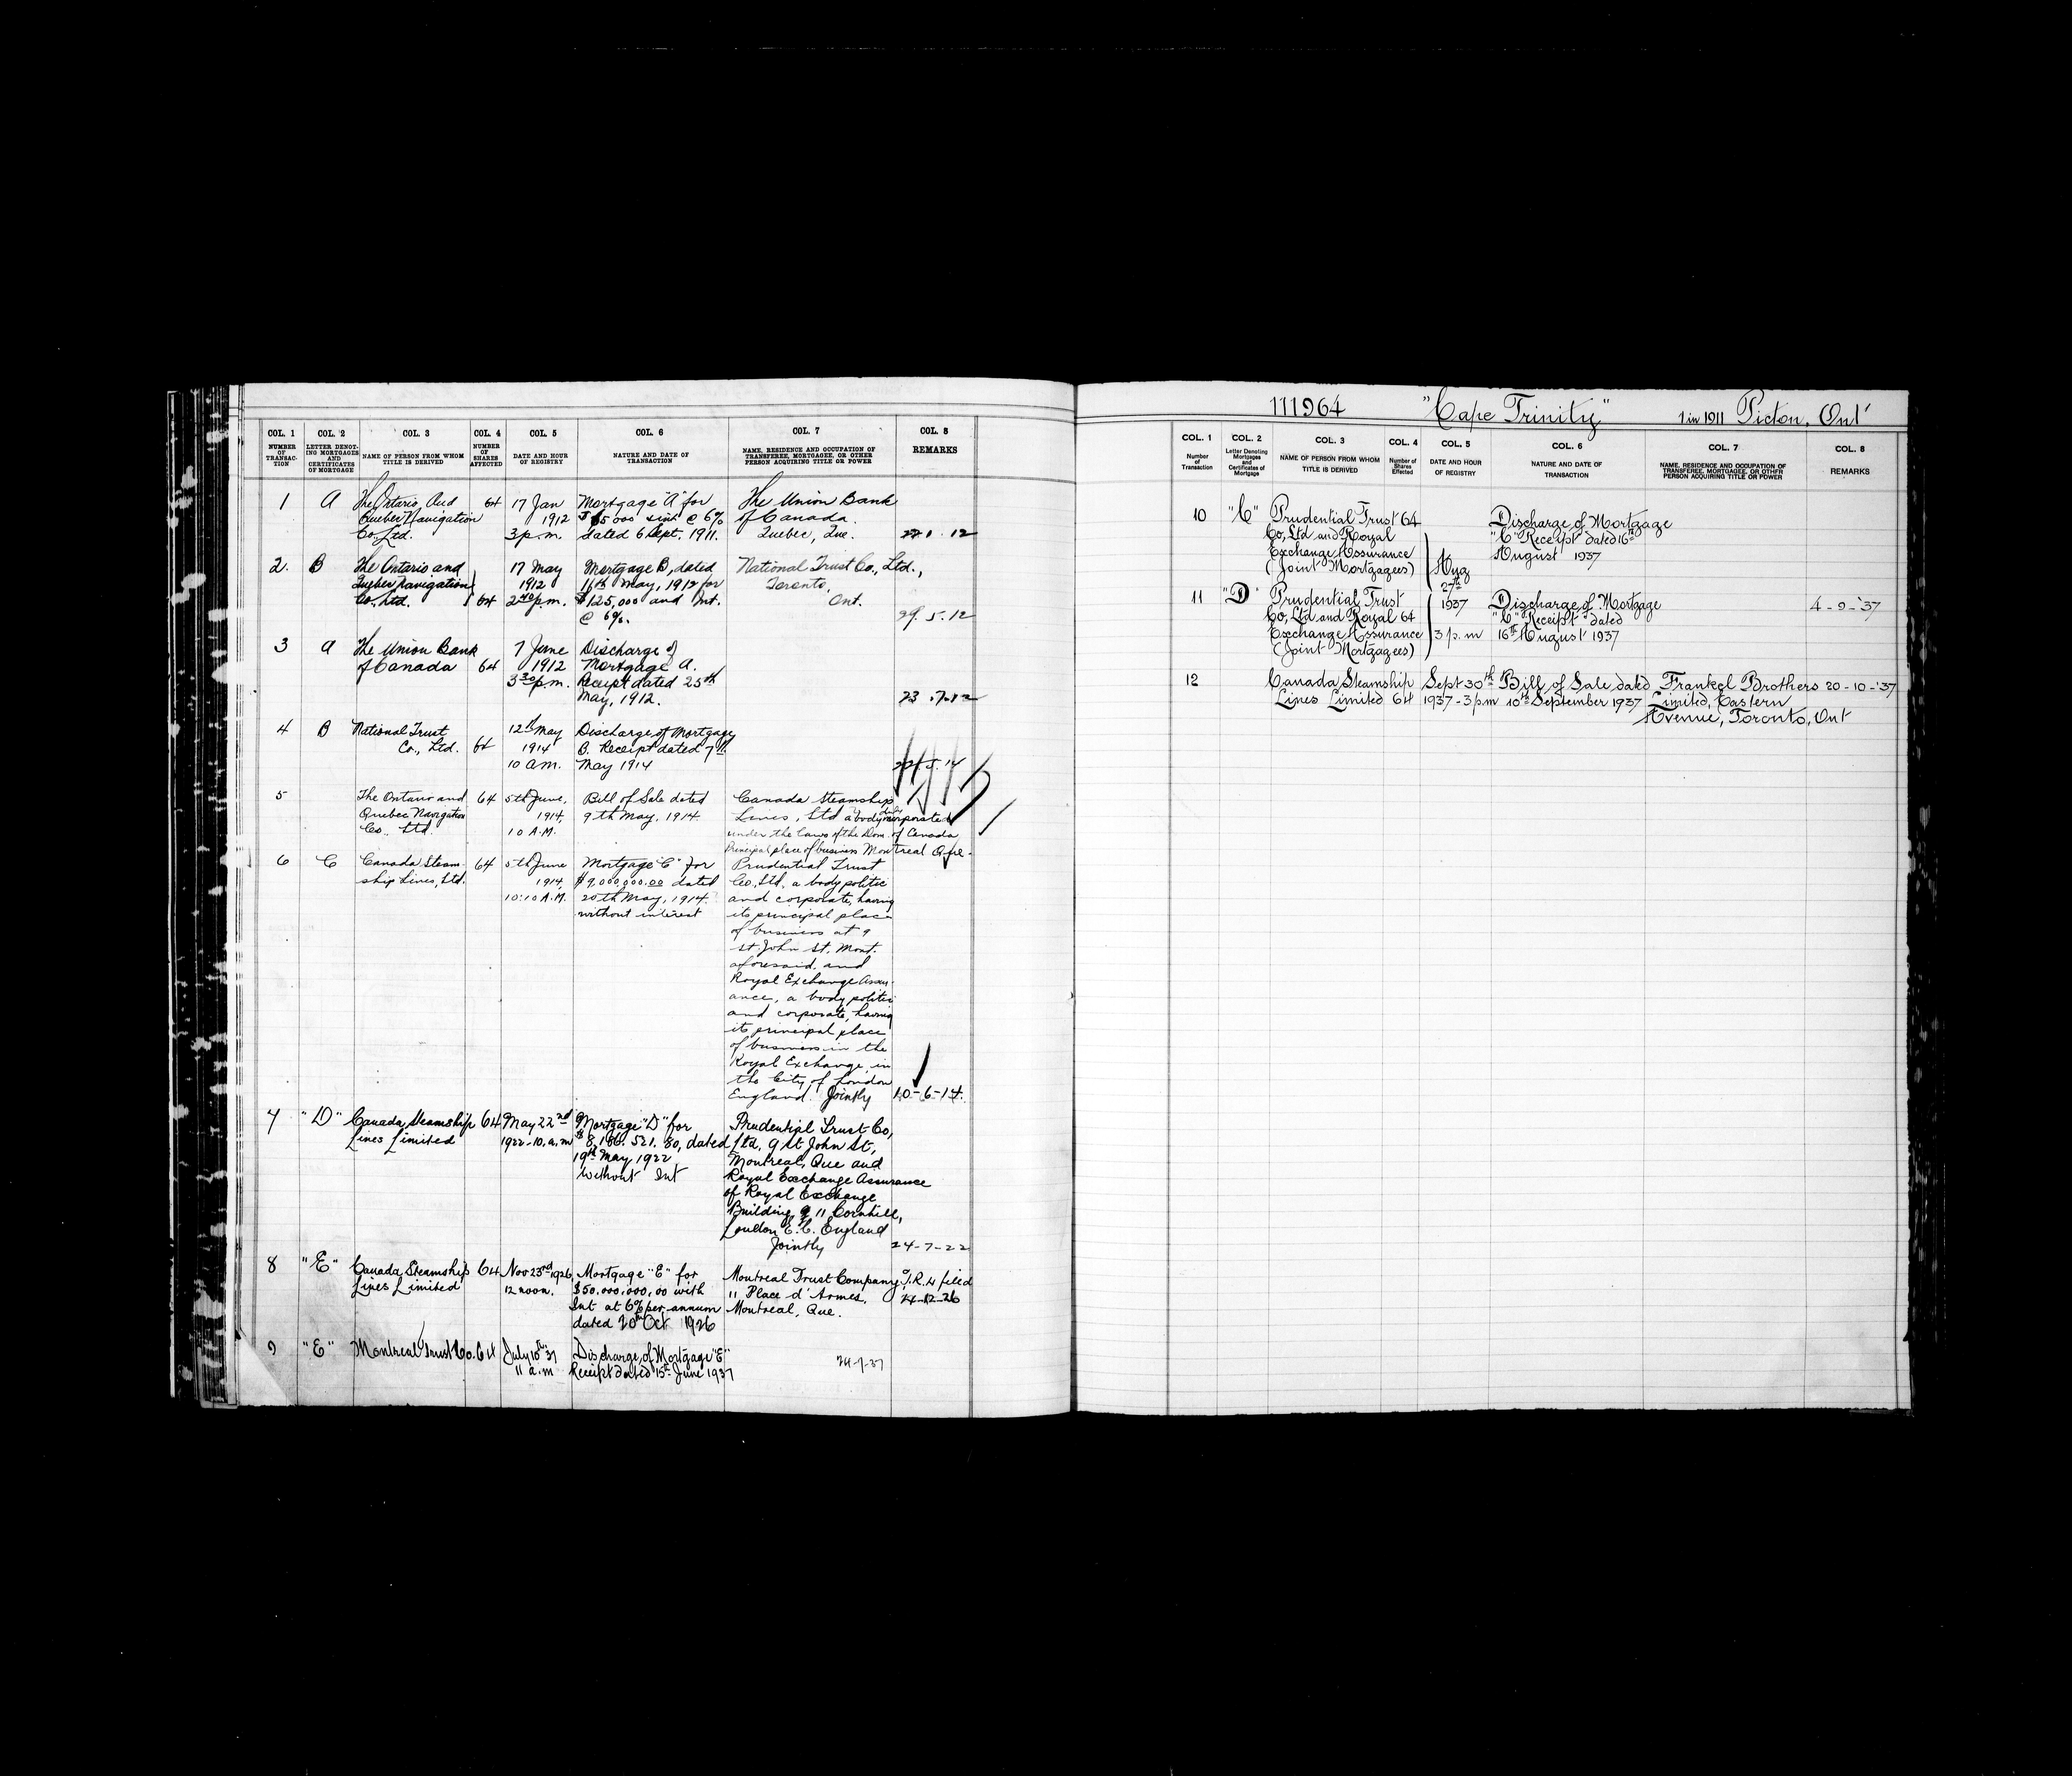 COL. 1 COL. 2 COL. 3 COL. 4 COL. 5 COL. 6 COL. 7 COL. 8
NUMBER OF TRANSACTION
LETTER DENOTING MORTGAGES AND CERTIFICATES OF MORTGAGE
NAME OF PERSON FROM WHOM TITLE IS DERIVED
NUMBER OF SHARES AFFECTED
DATE AND HOUR OF REGISTRY
NATURE AND DATE OF TRANSACTION
NAME, RESIDENCE AND OCCUPATION OF TRANSFEREE, MORTGAGEE, OR OTHER PERSON ACQUIRING TITLE OR POWER
REMARKS
1 A The Ontario and 64 17 Jan Mortgage "A" for The Union Bank
Quebec Navigation 1912 @ 6% of Canada.
Co. Ltd. 3 p.m. dated 6 Sept. 1911. Quebec, Que. 1. 12
2. B The Ontario and 17 May Mortgage B, dated National Trust Co., Ltd.,
Quebec Navigation 1912 May, 1912 for Toronto,
Co., Ltd. 64 2 40 p.m. $125,000 and Int. Ont.
@ 6%. 29. 5. 12
3 A The Union Bank 7 June Discharge of
of Canada 64 1912 Mortgage A.
3 30 p.m. Receipt dated 25th
May, 1912. 23. 7. 12
4 B National Trust 12th May Discharge of Mortgage
Co., Ltd. 64 1914 B. Receipt dated 7th
10 a m. May 1914
5 The Ontario and 64 5th June, Bill of Sale dated Canada Steamship
Quebec Navigation 1914, 9th May, 1914. Lines, Ltd a body duly incorporated
Co. Ltd. 10 A.M. under the laws of the Dom. of Canada
Principal place of business Montreal Que.
6 C Canada Steam- 64 5th June Mortgage "C" for Prudential Trust
ship Lines, Ltd. 1914, $9,000,000.00 dated Co., Ltd. a body politic
10:10 A.M. 20th May, 1914. and corporate, having
without interest its principal place
of business at 9
St. John St. Mont.
aforesaid, and
Royal Exchange Assur-
ance, a body politic
and corporate, having
its principal place
of business in the
Royal Exchange, in
the City of London
England. Jointly 10-6-14.
7 "D" Canada Steamship 64 May 22nd Mortgage "D" for Prudential Trust Co,
Lines Limited 1922-10. a.m $8,186.521.80, dated Ltd, 9 St John St,
19th May 1922 Montreal, Que and
Without Int Royal Exchange Assurance
of Royal Exchange
Building, 9 11 Cornhill,
London E.C. England
Jointly 24-7-22
8 "E" Canada Steamship 64 Nov 23rd 1926 Mortgage "E" for Montreal Trust Company T.R.4 filed
Lines Limited 12 noon. $50.000.000,00 with 11 Place d'Armes, 24-12-26
Int at 6% per annum Montreal, Que.
dated 20th Oct 1926
9 "E" Montreal Trust Co. 64 July 10th 37 Discharge of Mortgage "E"
11 a.m Receipt dated 15th June 1937
111964 "Cape Trinity" 1 in 1911 Picton, Ont
COL. 1 COL. 2 COL. 3 COL. 4 COL. 5 COL. 6 COL. 7 COL. 8
Number of Transaction
Letter Denoting Mortgages and Certificates of Mortgage
NAME OF PERSON FROM WHOM TITLE IS DERIVED
Number of Shares Effected
DATE AND HOUR OF REGISTRY
NATURE AND DATE OF TRANSACTION
NAME, RESIDENCE AND OCCUPATION OF TRANSFEREE, MORTGAGEE, OR OTHER PERSON ACQUIRING TITLE OR POWER
REMARKS
10 "C" Prudential Trust 64 Discharge of Mortgage
Co, Ltd and Royal "C" Receipt dated 16th
Exchange Assurance August 1937
(Joint Mortgagees) Aug
27th
11 "D" Prudential Trust 1937 Discharge of Mortgage 4-9-'37
Co, Ltd and Royal 64 Receipt dated
Exchange Assurance 3 p.m 16th August 1937
(Joint Mortgagees)
12 Canada Steamship Sept 30th Bill of Sale dated Frankel Brothers 20-10-'37
Lines Limited 64 1937-3 p.m 10th September 1937 Limited, Eastern
Avenue, Toronto, Ont